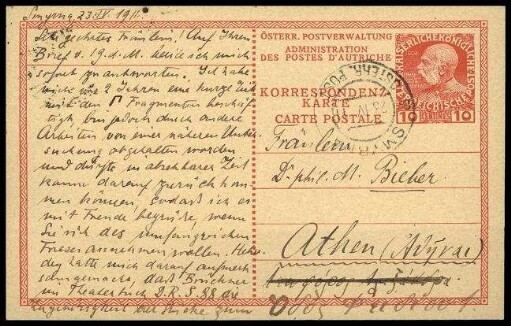 Smyrna 23/IV 1911.
Sehr geehrtes Fräulein! Auf Ihren
Brief v. 19. d. M. beeile ich mich
sofort zu antworten. Ich habe
mich vor 2 Jahren eine kurze Zeit
mit den Fragmenten beschäf-
tigt, bin jedoch durch andere
Arbeiten von einer näheren Unter-
suchung abgehalten worden
und dürfte in absehbarer Zeit
kaum darauf zurück kom-
men können, sodaß ich es
mit Freude begrüße, wenn
Sie sich des umfangreichen
Frieses annehmen wollen. He-
dey hatte mich darauf aufmerk-
sam gemacht, daß Brückner
im Theaterbuch D. R. S. 88 die
Zugehörigkeit der Stücke zum
ÖSTERR. POSTVERWALTUNG
ADMINISTRATION
DES POSTES D'AUTRICHE
KORRESPONDENZ-
KARTE
CARTE POSTALE
KAISERLICHE KÖNIGLICHE
ÖSTERREICHISCHE POST
10 10
SMYRNA
ÖSTERR. POST
23 IV 11
Fräulein
Dr. phil. M. Bieber
Athen (Ἀθῆναι)